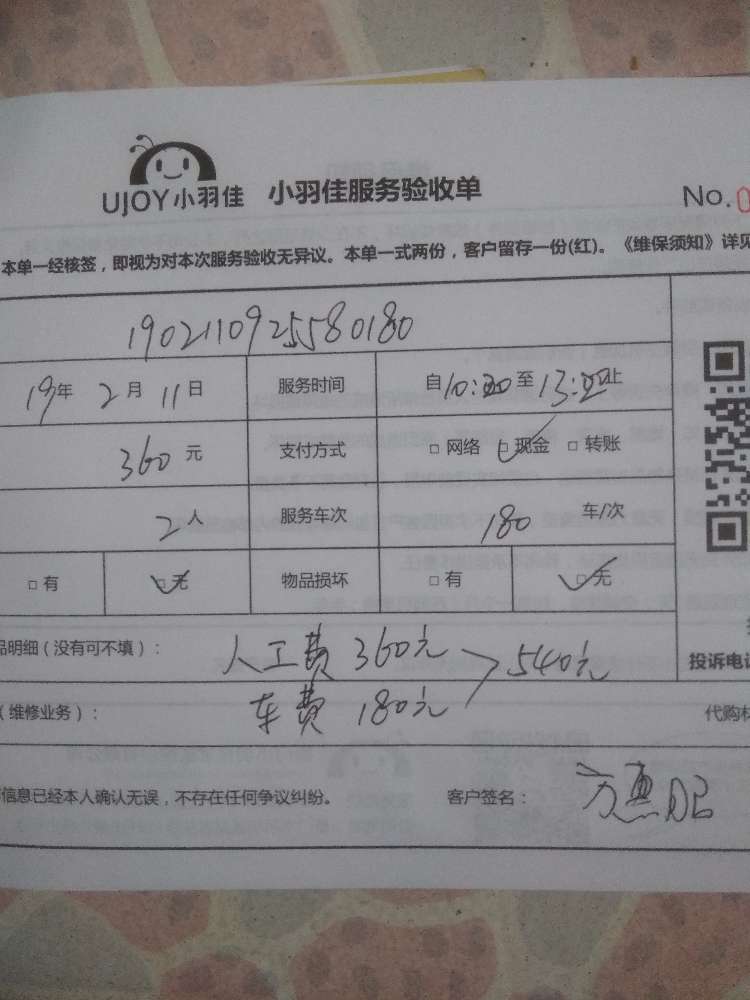 UJOY小羽佳 小羽佳服务验收单 No.0
本单一经核签，即视为对本次服务验收无异议。本单一式两份，客户留存一份(红)。《维保须知》详见
1902110925580180
19年 2月 11日 服务时间 自10:20至13:20止
360元 支付方式 □ 网络 □ 现金 □ 转账
2人 服务车次 180 车/次
□ 有 □ 无 物品损坏 □ 有 □ 无
品明细（没有可不填）： 人工费 360元 540元 投诉电话
（维修业务）： 车费 180元 代购材
信息已经本人确认无误，不存在任何争议纠纷。 客户签名： 方惠昭